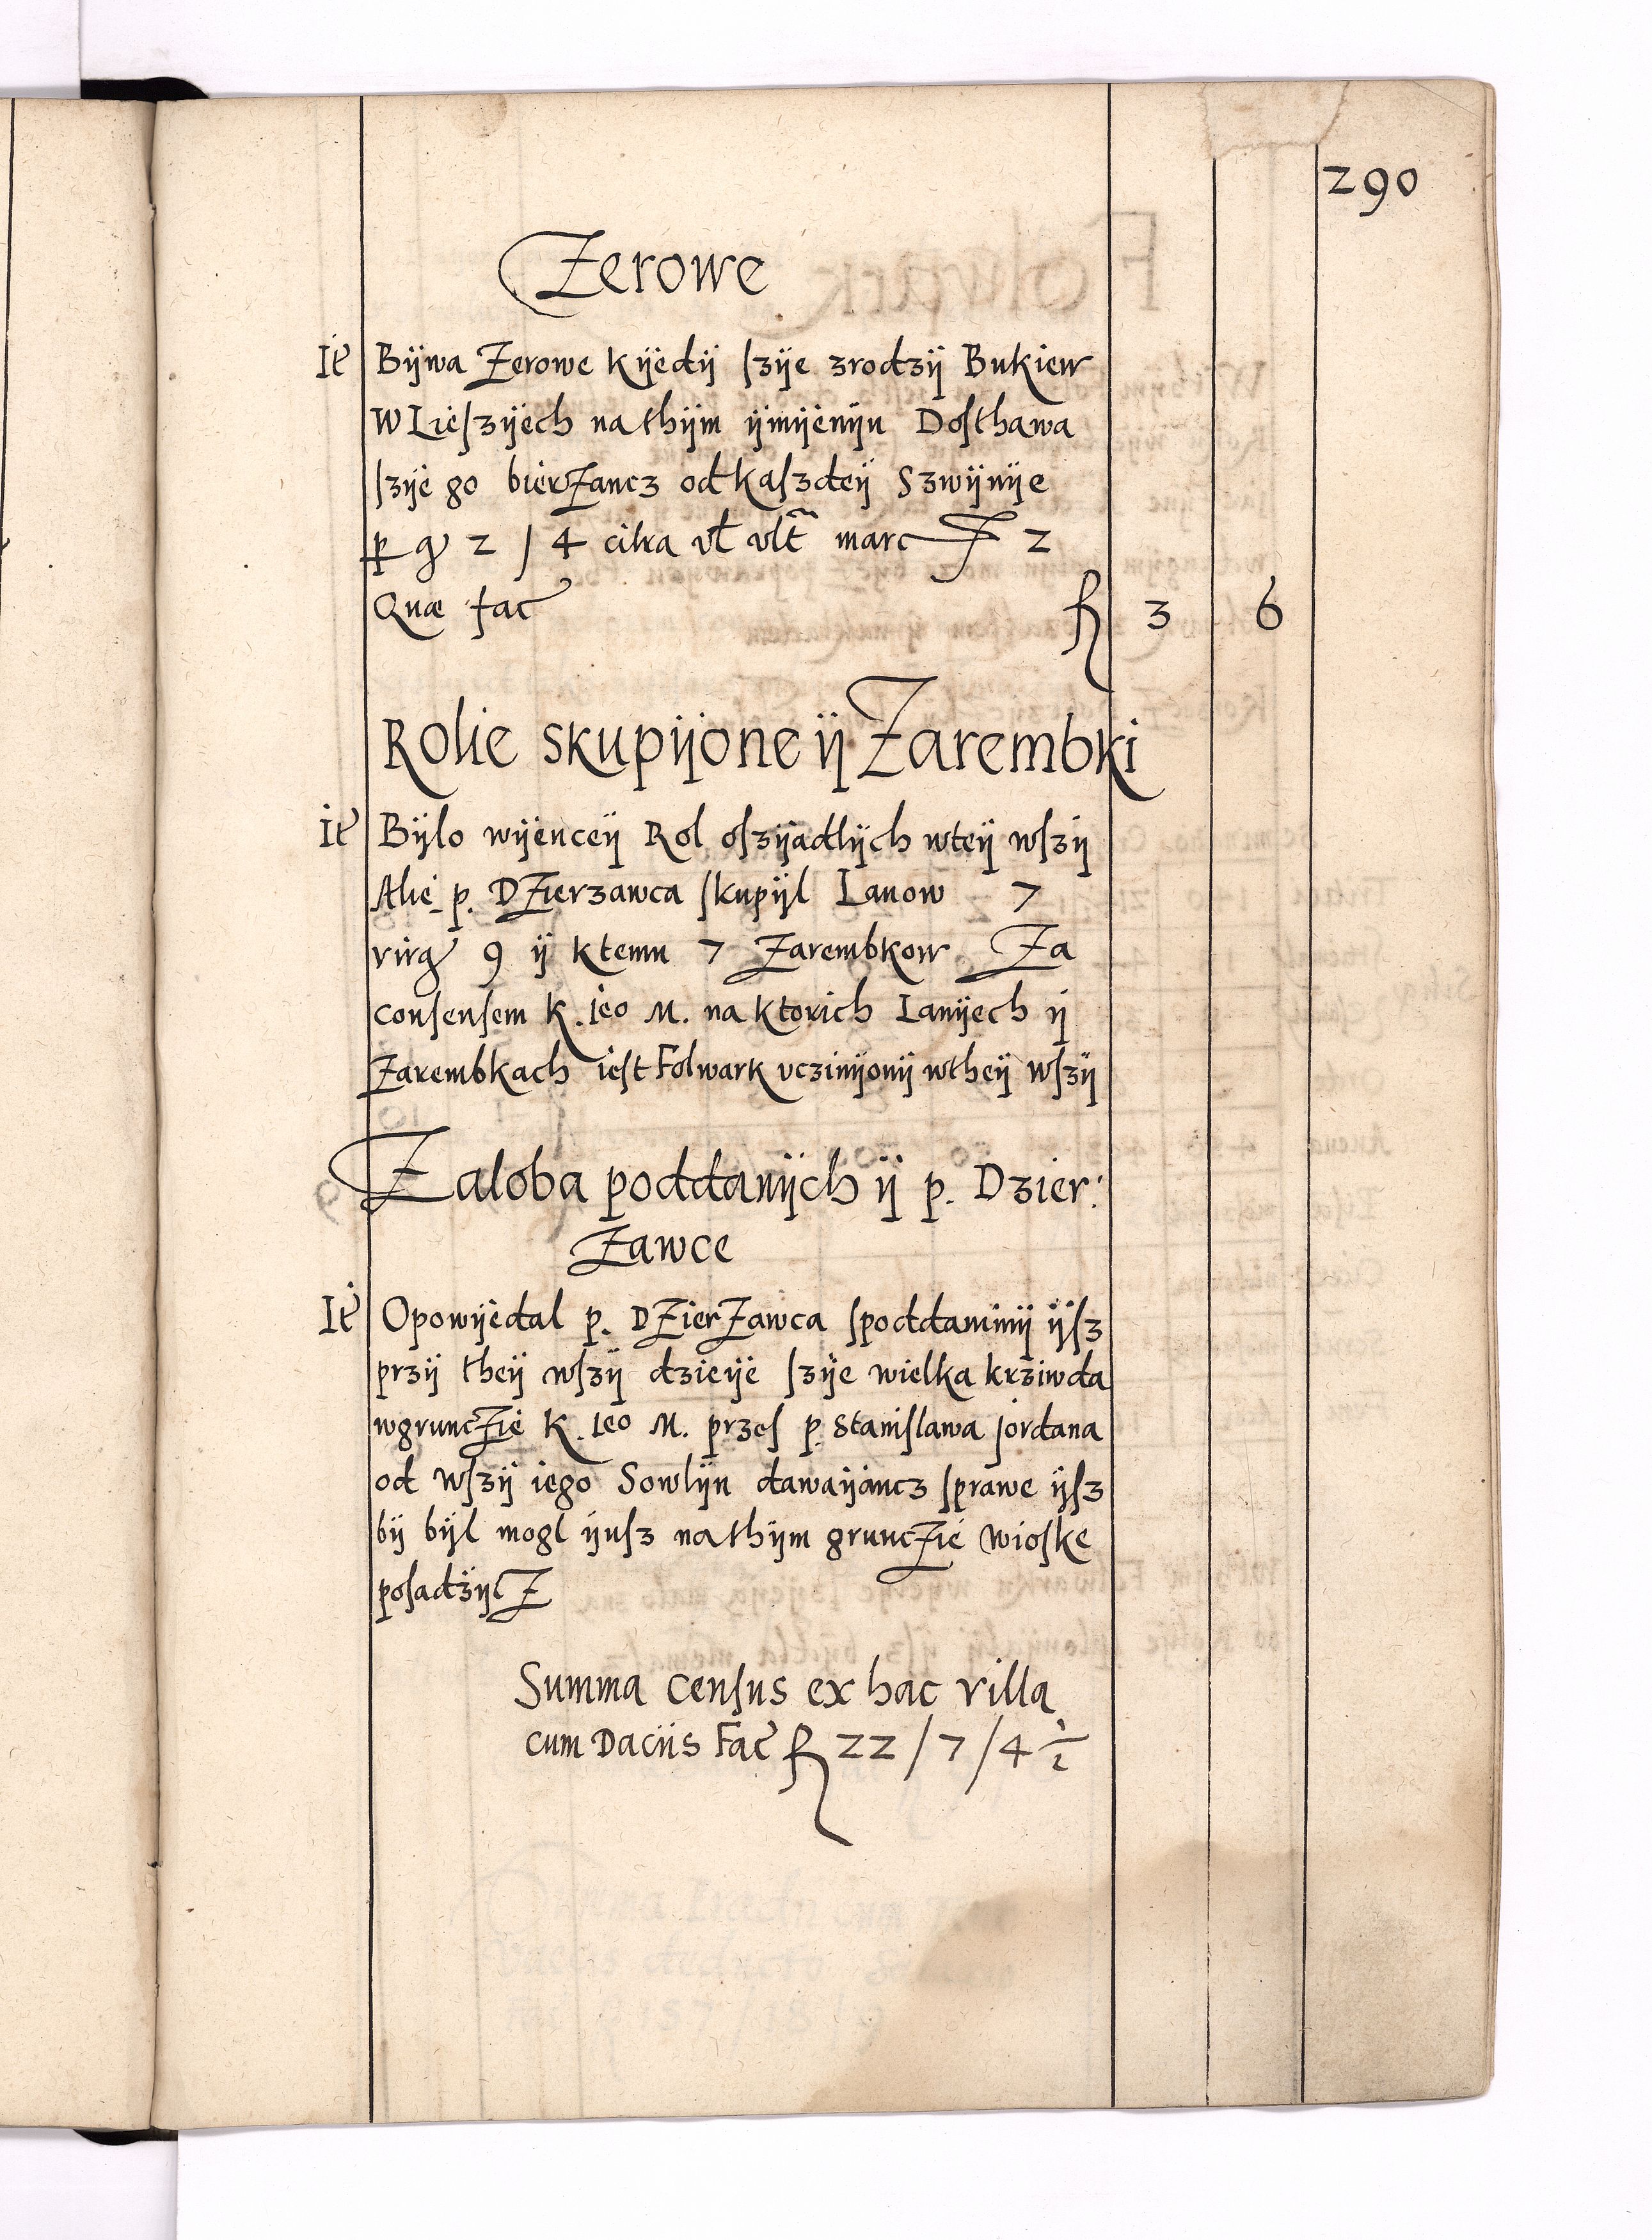 290
Zerowe
It Bÿwa Zerowe kÿedÿ ſzÿe zrodzÿ Bukiew
W Lieſzÿech na thÿm ÿmÿenÿu Doſthawa
ſzÿe go bierzancz od kaſzdeÿ Szwÿnÿe
p gr 2 / 4 citra vl vlt marc F 2
Quæ fac fl 3 6
Rolie skupÿone ÿ Zarembki
It Bÿlo wÿenceÿ Rol oſzÿadlÿch wteÿ wſzÿ
Alie p. DZierzawca ſkupÿl Lanow 7
virg 9 ÿ ktemu 7 Zarembkow Za
conſenſem K. ieo M. na ktorich Lanÿech ÿ
Zarembkach ieſt Folwark vczinÿonÿ wtheÿ wſzÿ
Zaloba poddanÿch ÿ p. Dzier:
Zawce
It Opowÿedal p. DZierZawca ſpoddanimÿ ÿſz
przÿ theÿ wſzÿ dzieÿe ſzÿe wielka krziwda
wgruncZie K. ieo M. przeſ p. Staniſlawa Jordana
od wſzÿ iego Sowlÿn dawaÿancz ſprawe ÿſz
bÿ bÿl mogl ÿuſz na thÿm gruncZie wioſke
poſadzÿcZ
Summa cenſus ex hac villa
cum Daciis Fac fl 22 / 7 / 4 1/2